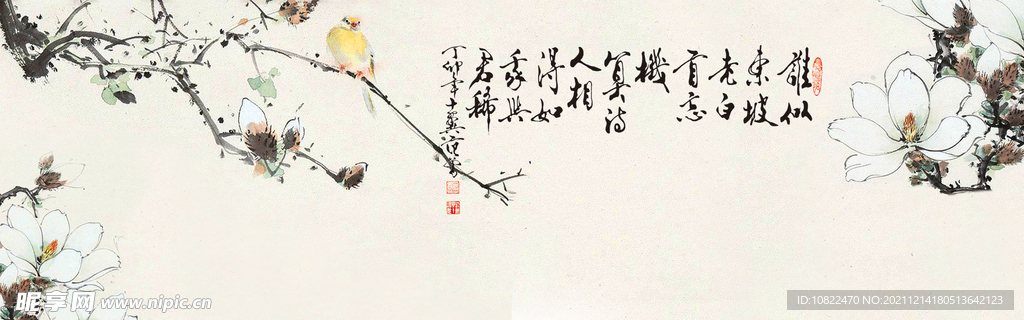 誰似
東坡
老白
首忘
機
算詩
人相
得如
我與
君稀
丁卯年十
昵享网 www.nipic.cn
ID:10822470 NO:20211214180513642123